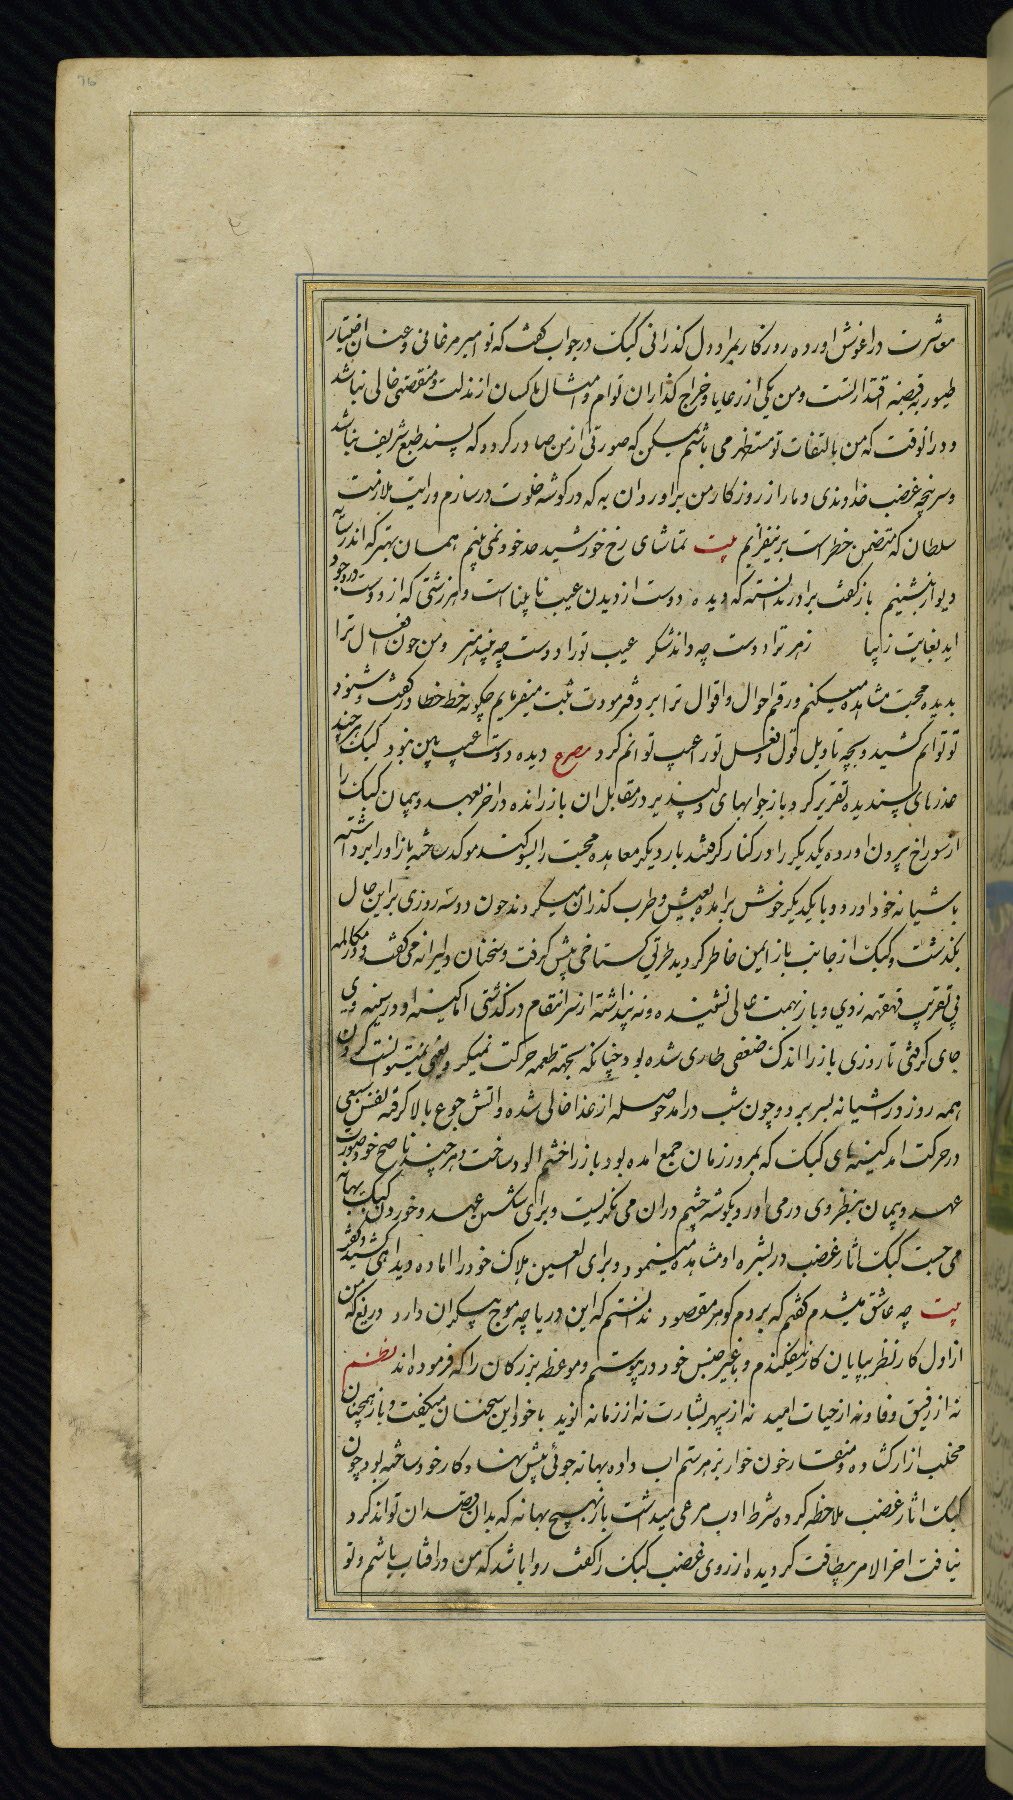 معاشرت در اغوش اورده روزکار بمراد دل کذرانی کبک در جواب کفت که تو امیر مرغانی و عنان اختیار
طیور بقبضه اقتدار تست و من یکی از رعایا و خراج کذاران توام و امثال ما کسان از مذلت و منقصتی خالی نباشد
و در انوقت که من بالتفات تو مستظهر می باشم ممکن که صورتی از من صادر کردد که پسند طبع شریف نباشد
و سرپنجه غضب خداوندی دمار از روزکار من براورد ان به که در کوشه خلوت درسازم و رایت ملازمت
سلطان که متضمن خطر است برنیفرازم بیت تماشای رخ خورشید حد خود نمی بینم همان بهتر که اندر سایه
دیوار بنشینم باز کفت برادر ندانسته که دیده دوست از دیدن عیب نابیناست و هر زشتی که از دوست در وجود
اید بغایت زیبا زهر ترا دوست چه داند شکر عیب تو را دوست چه بیند هنر و من چون افعال ترا
بدیده محبت مشاهده میکنم و رقم احوال و اقوال ترا بر دفتر مودت ثبت میفرمایم چکونه خط خطا در کفت و شنود
تو توانم کشید و بچه تاویل قول و فعل تو را عیب توانم کرد مصرع دیده دوست عیب بین نبود کبک هر چند
عذرهای پسندیده تقریر کرد باز جوابهای دلپذیر در مقابل ان باز رانده در اخر بعهد و پیمان کبک را
از سوراخ بیرون اورده یکدیکر را در کنار کرفتند بار دیکر معاهده محبت را بسوکند موکد ساخته باز او را برداشته
باشیانه خود اورد و با یکدیکر خوش برامده بعیش و طرب کذران میکردند چون دو سه روزی برین حال
بکذشت و کبک از جانب باز ایمن خاطر کردید طریق کستاخی پیش کرفت و سخنان دلیرانه می کفت و در مکالمه
بی تقریب قهقهه زدی و باز بهمت عالی نشنیده و نه پنداشته از سر انتقام درکذشتی اما کینه او در سینه وی
جای کرفتی تا روزی باز را اندک ضعفی طاری شده بود چنانکه بجهته طعمه حرکت نمیکرد یعنی نمیتوانست کردن
همه روز در اشیانه بسر برد و چون شب درامد حوصله از غذا خالی شده و اتش جوع بالا کرفته نفس سبعی
در حرکت امد کینه های کبک که بمرور زمان جمع امده بود باز را خشم الود ساخت و هر چند ناصح خود صورت
عهد و پیمان بنظر وی درمی اورد بکوشه چشم دران می نکریست و برای شکستن عهد و خوردن کبک بهانه
می جست کبک اثار غضب در بشره او مشاهده مینمود و برای العین هلاک خود را اماده دید اهی کشید و کفت
بیت چه عاشق میشدم کفتم که بردم کوهر مقصود ندانستم که این دریا چه موج بیکران دارد دریغ که من
از اول کار نظر بپایان کار نیفکندم و با غیر جنس خود درپیوستم و موعظه بزرکان را که فرموده اند نظم
نه از رفیق وفا و نه از حیات امید نه از سپهر بشارت نه از زمانه نوید با خود این سخنان میکفت و باز همچنان
مخلب ازار کشاده و منقار خون خوار بزهر ستم اب داده بهانه جوئی پیش نهاد کار خود ساخته بود چون
کبک اثار غضب ملاحظه کرده شرط ادب مرعی میداشت باز هیچ بهانه که بدان قصد ان تواند کرد
نیافت اخر الامر بیطاقت کردیده از روی غضب کبک را کفت روا باشد که من در افتاب باشم و تو